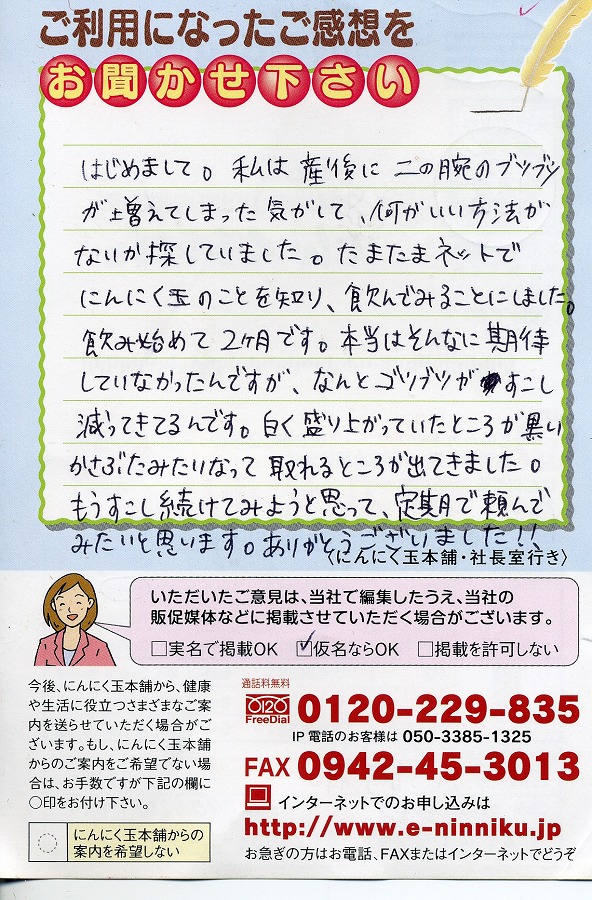 ご利用になったご感想を
お聞かせ下さい
はじめまして。私は産後に二の腕のブツブツ
が増えてしまった気がして、何がいい方法が
ないか探していました。たまたまネットで
にんにく玉のことを知り、飲んでみることにしました。
飲み始めて2ヶ月です。本当はそんなに期待
していなかったんですが、なんとブツブツがすこし
減ってきてるんです。白く盛り上がっていたところが黒い
かさぶたみたいなって取れるところが出てきました。
もうすこし続けてみようと思って、定期で頼んで
みたいと思います。ありがとうございました!!
〈にんにく玉本舗・社長室行き〉
いただいたご意見は、当社で編集したうえ、当社の
販促媒体などに掲載させていただく場合がございます。
□実名で掲載OK ☑仮名ならOK □掲載を許可しない
今後、にんにく玉本舗から、健康
や生活に役立つさまざまなご案
内を送らせていただく場合がご
ざいます。もし、にんにく玉本舗
からのご案内をご希望でない場
合は、お手数ですが下記の欄に
〇印をお付け下さい。
にんにく玉本舗からの
案内を希望しない
通話料無料
FreeDial 0120-229-835
IP電話のお客様は 050-3385-1325
FAX 0942-45-3013
インターネットでのお申し込みは
http://www.e-ninniku.jp
お急ぎの方はお電話、FAXまたはインターネットでどうぞ